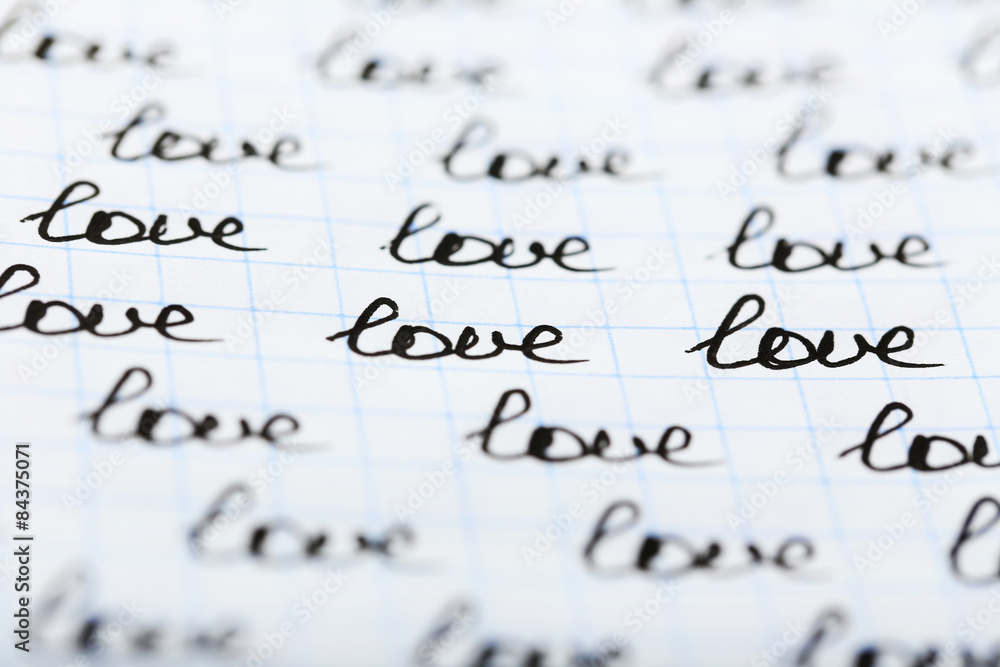 love love love
love love love
love love love
love love love
love love lov
love love
love lov
Adobe Stock | #84375071